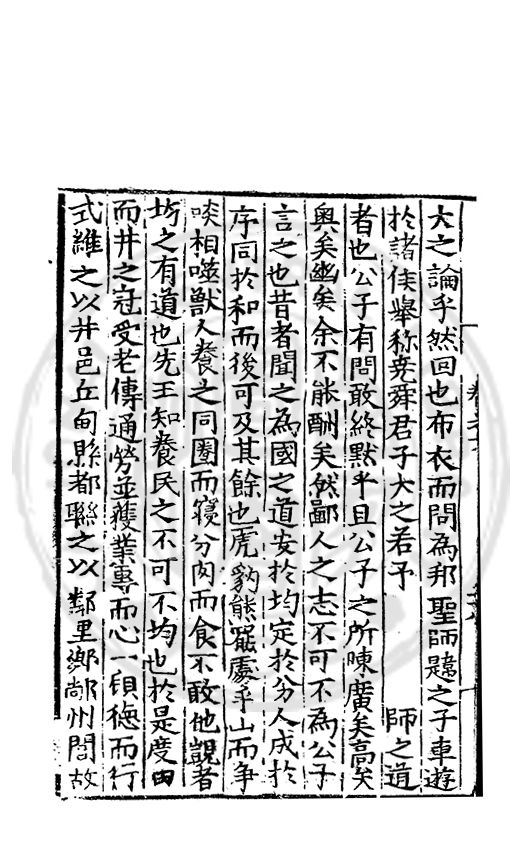 大之論乎然回也布衣而問為邦聖師韙之子車遊
於諸侯舉称尭舜君子大之若予　　　師之道
者也公子有問敢終黙乎且公子之所陳廣矣高矣
奥矣幽矣余不能酬矣然鄙人之志不可不為公子
言之也昔者聞之為國之道安於均定於分人成於
序同於和而後可及其餘也虎豹熊羆處乎山而争
啖相噬獸人養之同圏而寝分肉而食不敢他覬者
均之有道也先王知養民之不可不均也於是度田
而井之冠受老傳通勞並獲業專而心一順徳而行
式維之以井邑丘甸縣都聯之以鄰里鄉鄙州閭故